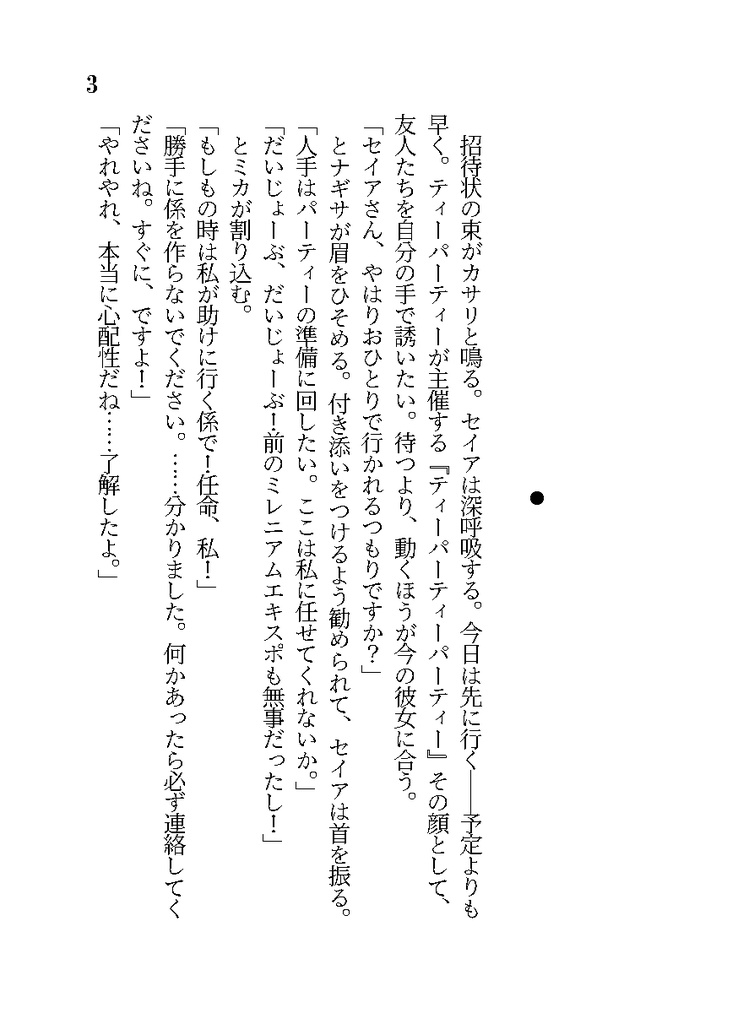 ●
招待状の束がカサリと鳴る。セイアは深呼吸する。今日は先に行く――予定よりも
早く。ティーパーティーが主催する『ティーパーティーパーティー』その顔として、
友人たちを自分の手で誘いたい。待つより、動くほうが今の彼女に合う。
「セイアさん、やはりおひとりで行かれるつもりですか？」
とナギサが眉をひそめる。付き添いをつけるよう勧められて、セイアは首を振る。
「人手はパーティーの準備に回したい。ここは私に任せてくれないか。」
「だいじょーぶ、だいじょーぶ！前のミレニアムエキスポも無事だったし！」
とミカが割り込む。
「もしもの時は私が助けに行く係で！任命、私！」
「勝手に係を作らないでください。……分かりました。何かあったら必ず連絡してく
ださいね。すぐに、ですよ！」
「やれやれ、本当に心配性だね……了解したよ。」
3